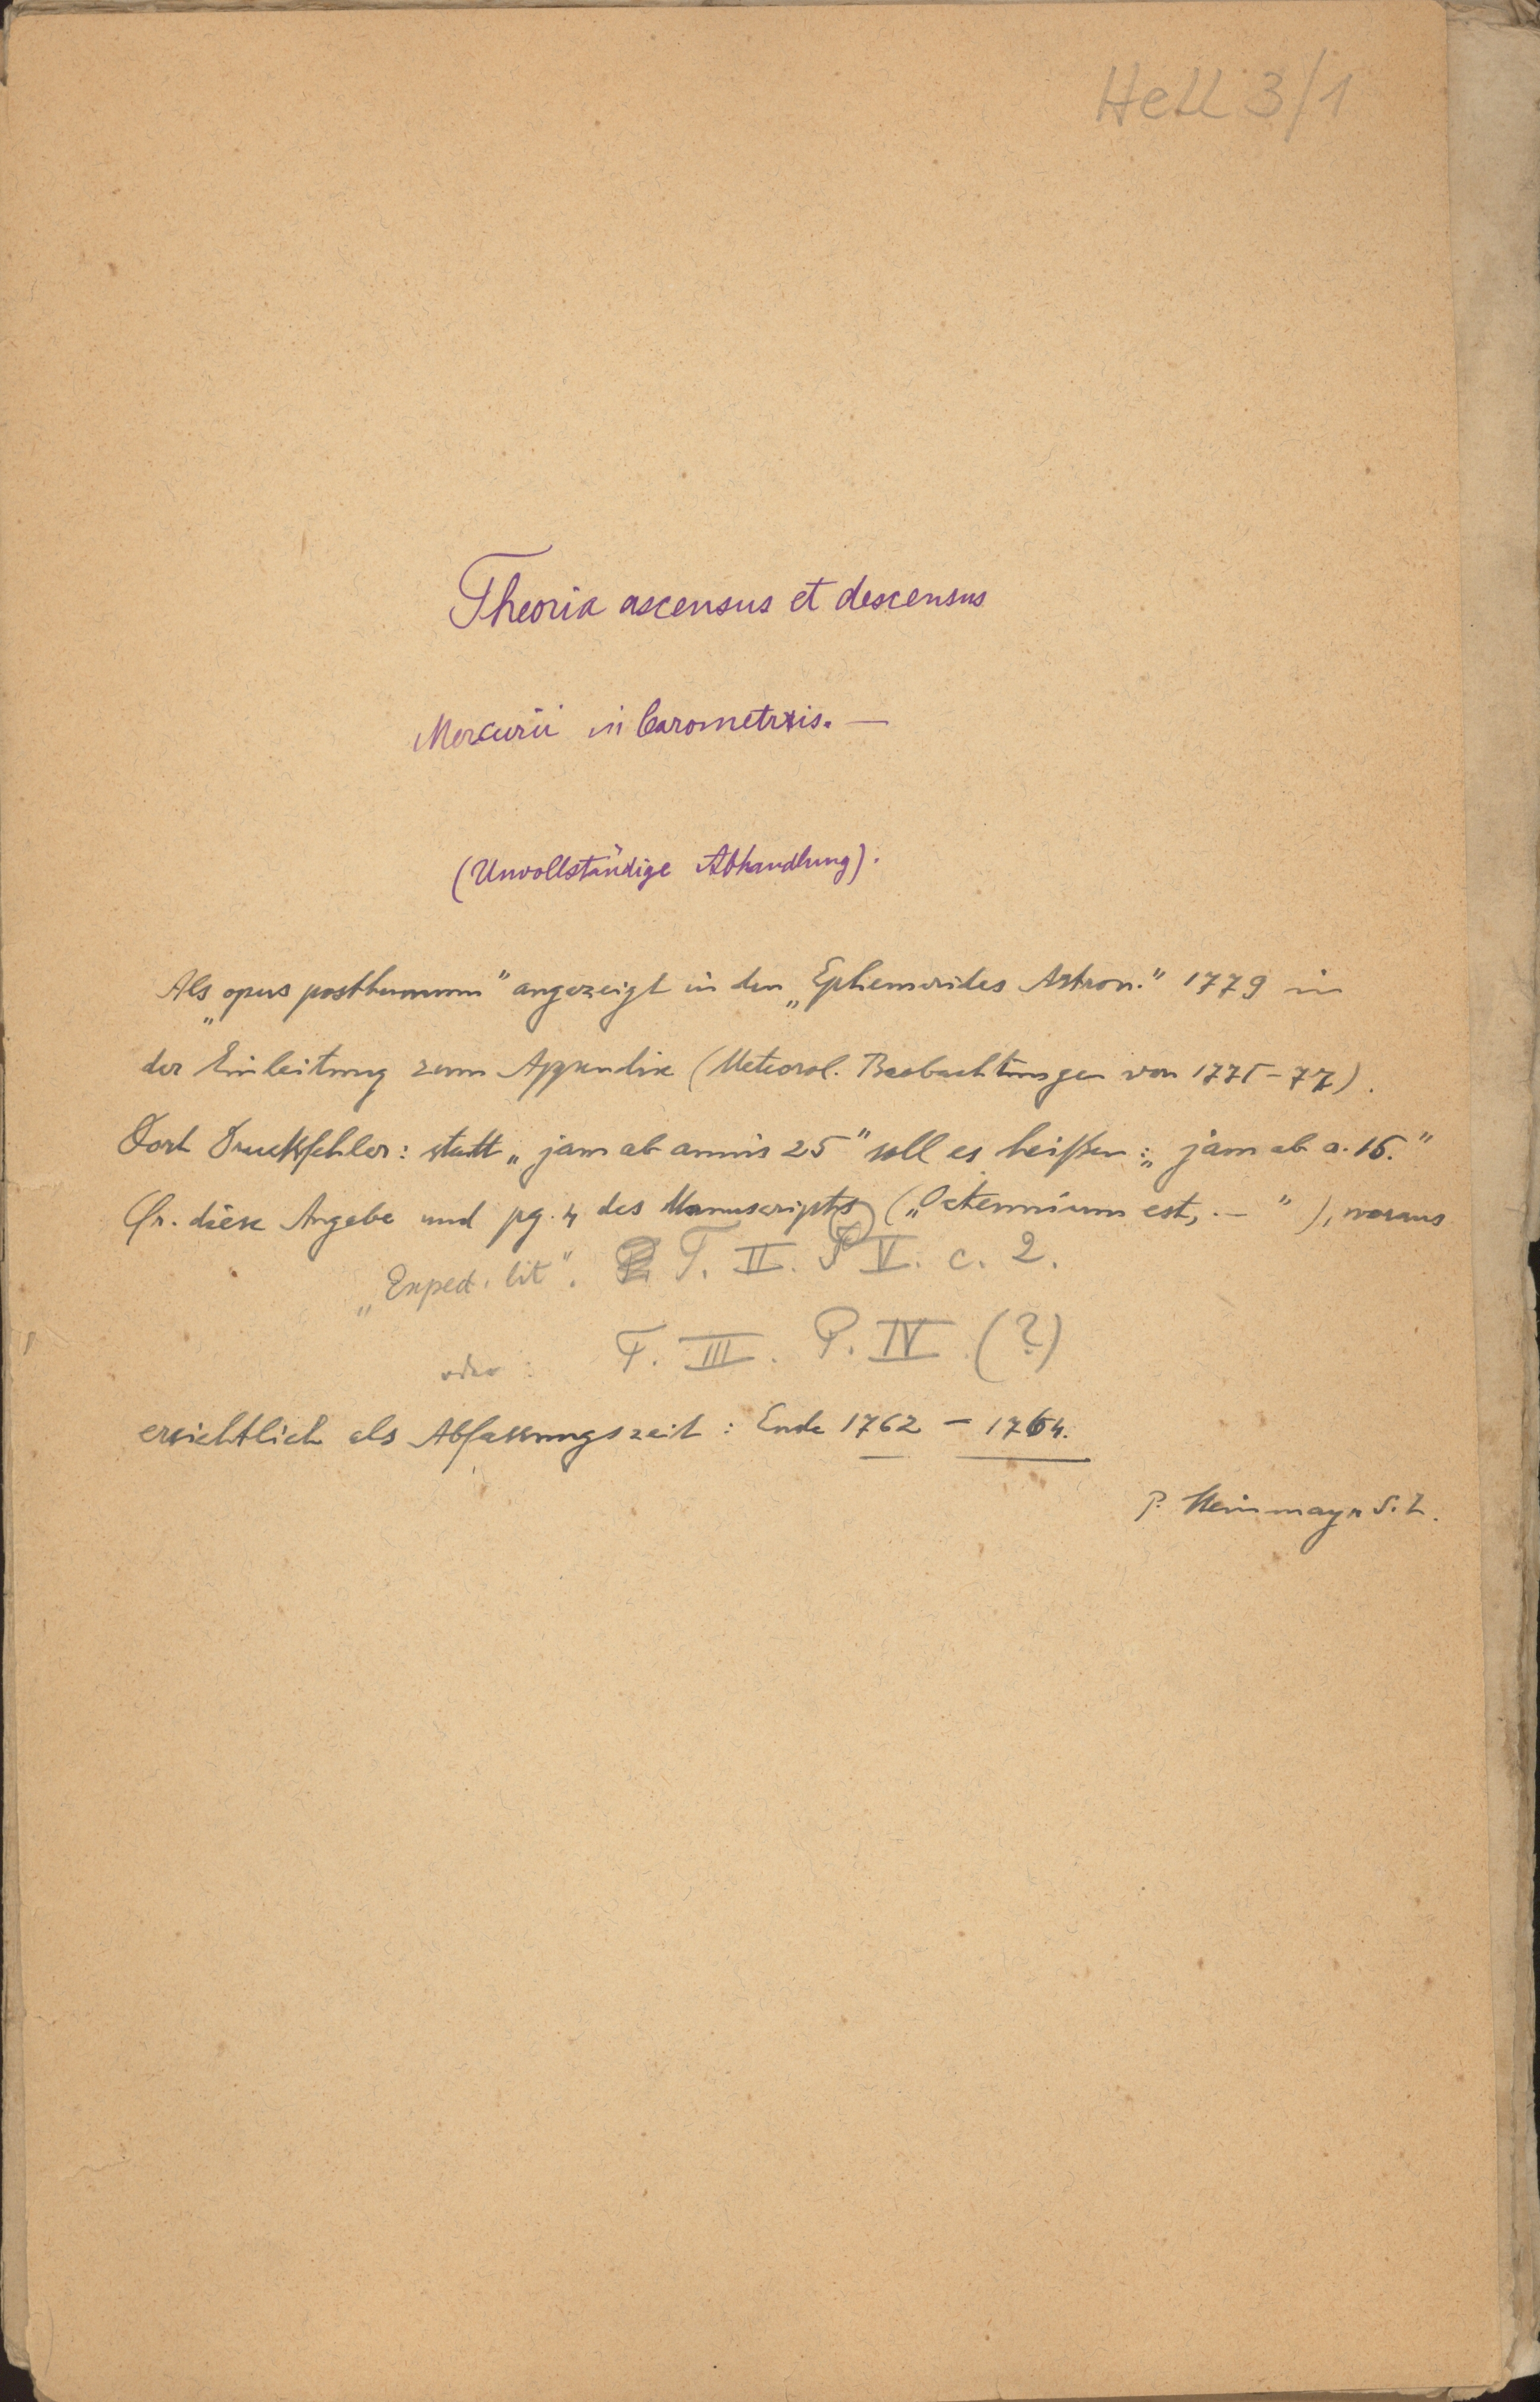 Hell 3/1
Theoria ascensus et descensus
Mercurii in barometris. —
(Unvollständige Abhandlung).
Als „opus posthumum" angezeigt in den „Ephemerides Astron." 1779 in
der Einleitung zum Appendix (Meteorol. Beobachtungen von 1775–77).
Dort Druckfehler: statt „jam ab annis 25" soll es heißen: „jam ab a. 15."
Cfr. diese Angabe und pg. 4 des Manuscripts („Octennium est, .— "), woraus
„Exped. lit". T. II. P V. c. 2.
oder: T. III. P. IV (?)
ersichtlich als Abfassungszeit: Ende 1762 – 1764.
P. Steinmayr S.J.